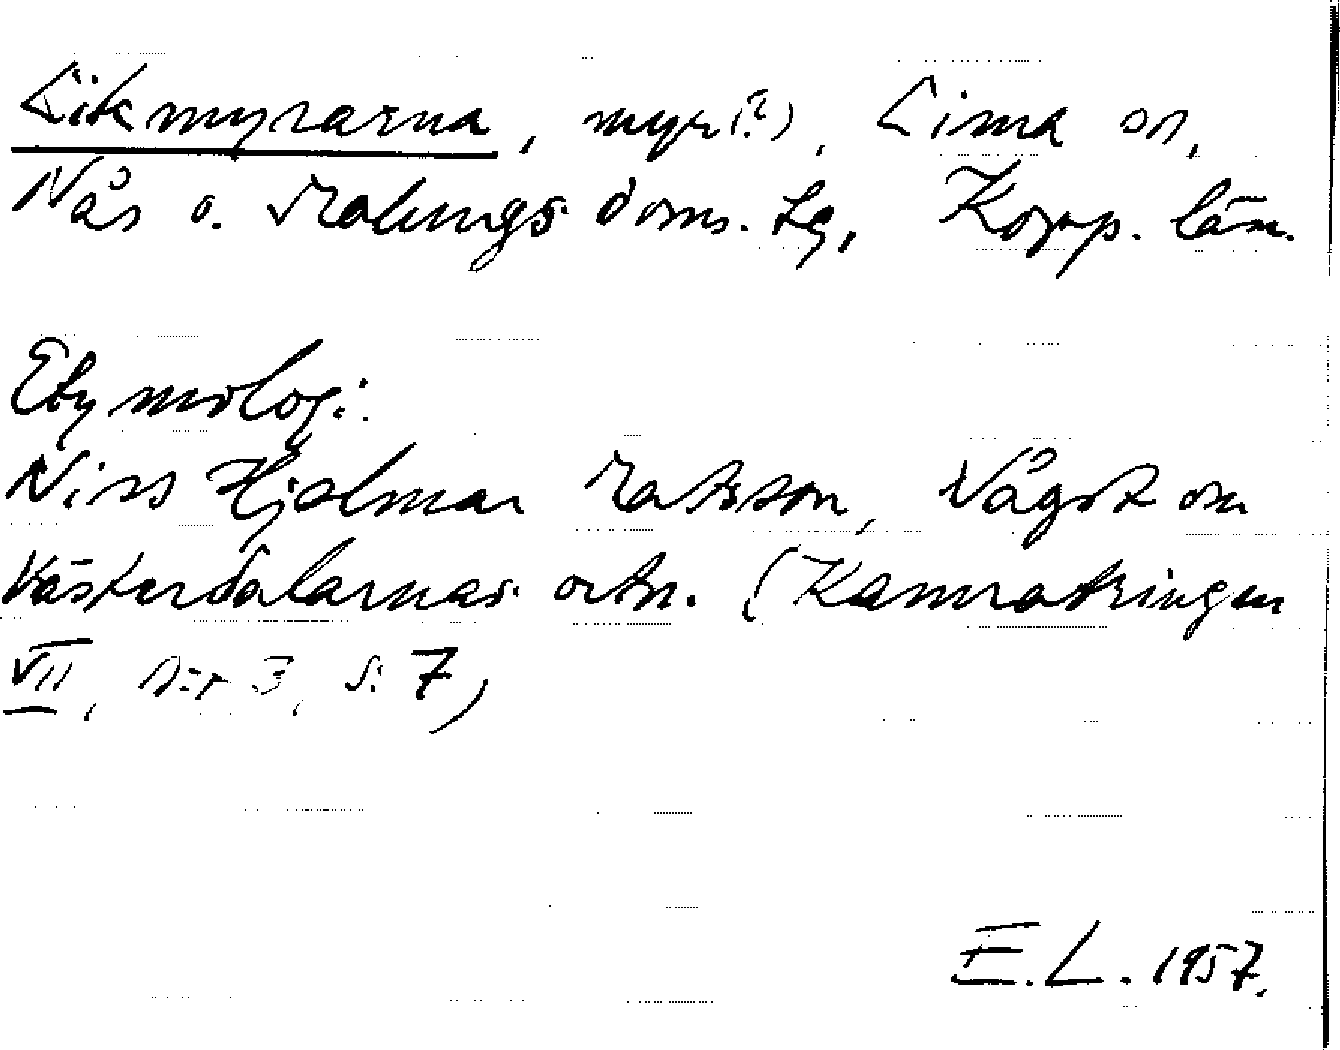 Likmyrarna, myr(?), Lima sn,
Nås o. Malungs doms. tg, Kopp. län.
Etymologi:
Niss Hjalmar Matsson, Något om
Västerdalarnas ortn. (Kamratringen
VII, n:r 3, s. 7)
E.L. 1957.